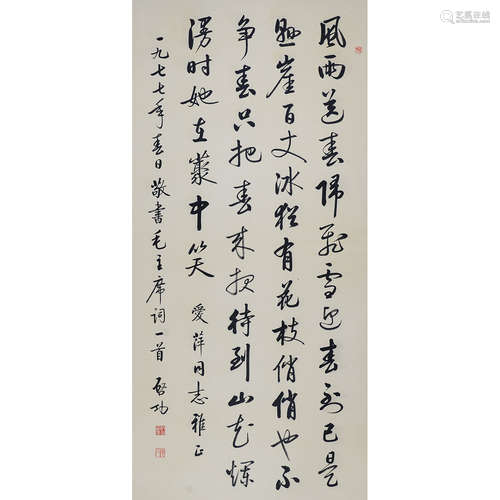 風雨送春歸飛雪迎春到已是
懸崖百丈冰猶有花枝俏俏也不
争春只把春来报待到山花爛
漫时她在叢中笑
愛萍同志雅正
一九七七年春日敬書毛主席詞一首 啓功